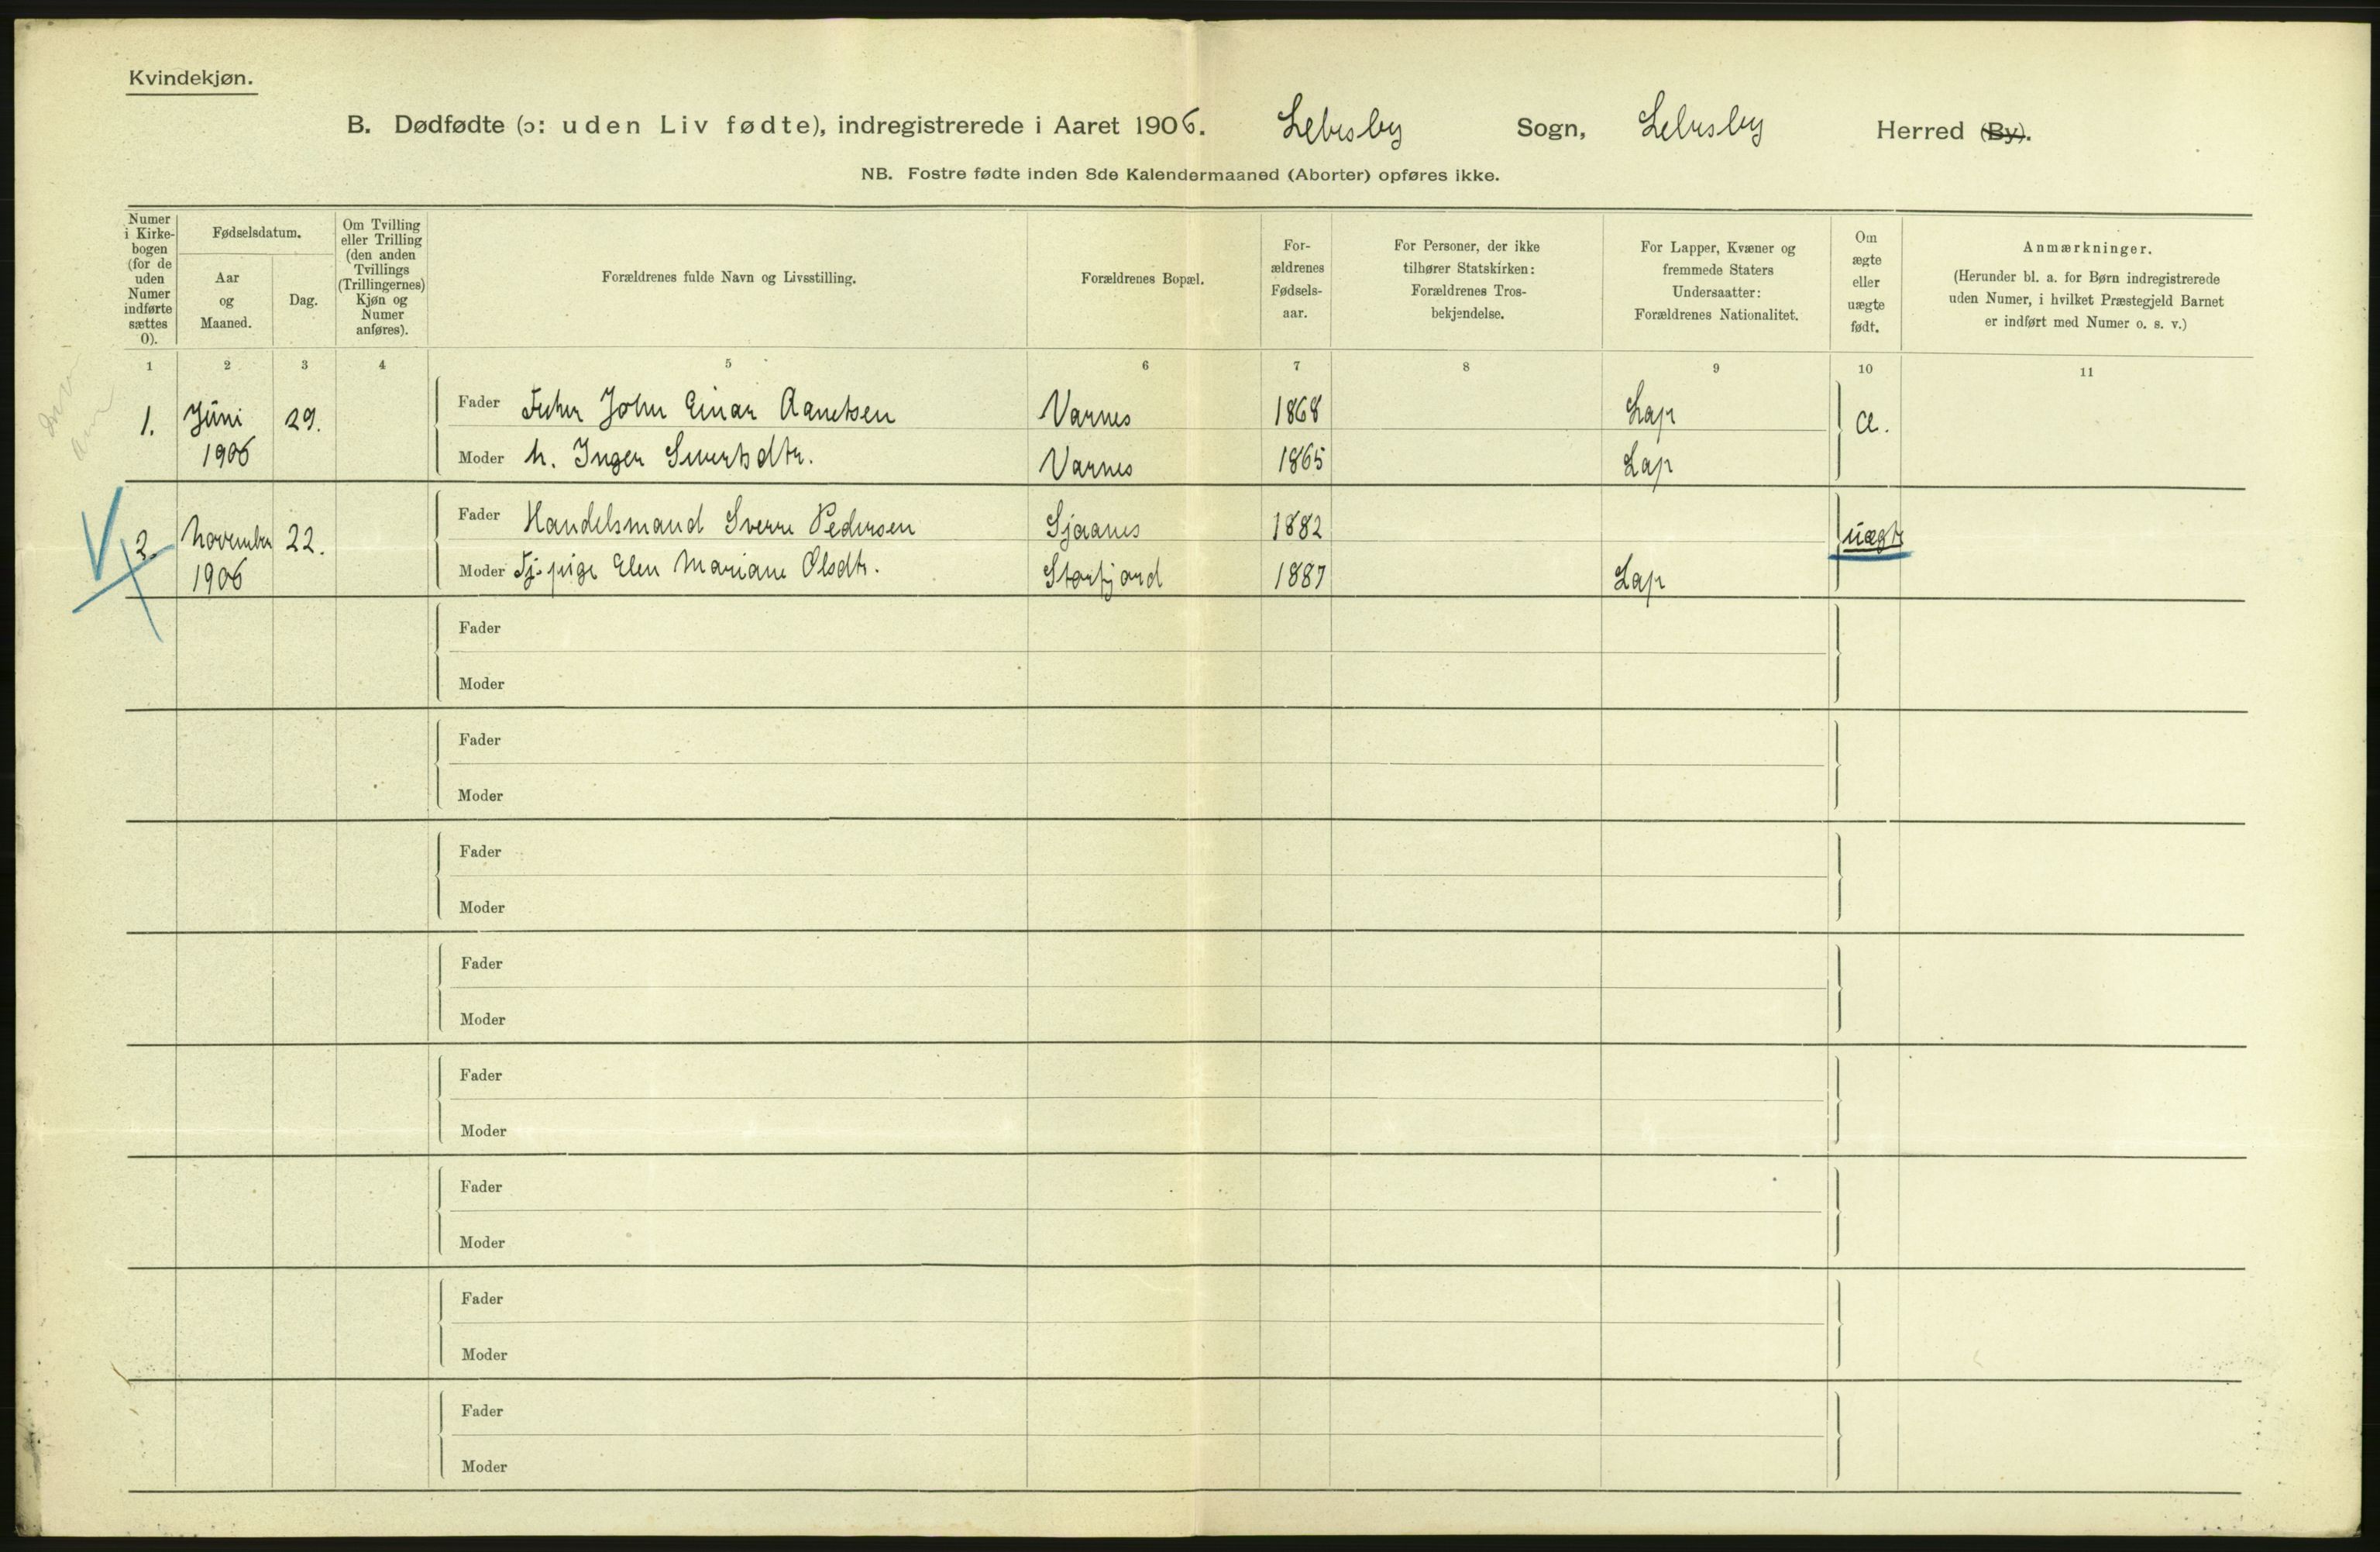 Kvindekjøn.
B. Dødfødte (ɔ: uden Liv fødte), indregistrerede i Aaret 1906. Lebesby Sogn, Lebesby Herred (By).
NB. Fostre fødte inden 8de Kalendermaaned (Aborter) opføres ikke.
Numer i Kirke-bogen (for de uden Numer indførte sættes 0).
Fødselsdatum.
Aar og Maaned.
Dag.
Om Tvilling eller Trilling (den anden Tvillings (Trillingernes) Kjøn og Numer anføres).
Forældrenes fulde Navn og Livsstilling.
Forældrenes Bopæl.
For-ældrenes Fødsels-aar.
For Personer, der ikke tilhører Statskirken: Forældrenes Tros-bekjendelse.
For Lapper, Kvæner og fremmede Staters Undersaatter: Forældrenes Nationalitet.
Om ægte eller uægte født.
Anmærkninger.
(Herunder bl. a. for Børn indregistrerede uden Numer, i hvilket Præstegjeld Barnet er indført med Numer o. s. v.)
1 2 3 4 5 6 7 8 9 10 11
1. Juni 29. Fader Fisker John Einar Aanetsen Varnes 1868 Lap Æ.
1906 Moder h. Inger Sivertsdtr. Varnes 1865 Lap
2. November 22. Fader Handelsmand Sverre Pedersen Sjaanes 1882 uægte
1906 Moder Tj. pige Elen Mariane Olsdtr. Storfjord 1887 Lap
Fader
Moder
Fader
Moder
Fader
Moder
Fader
Moder
Fader
Moder
Fader
Moder
Fader
Moder
Fader
Moder